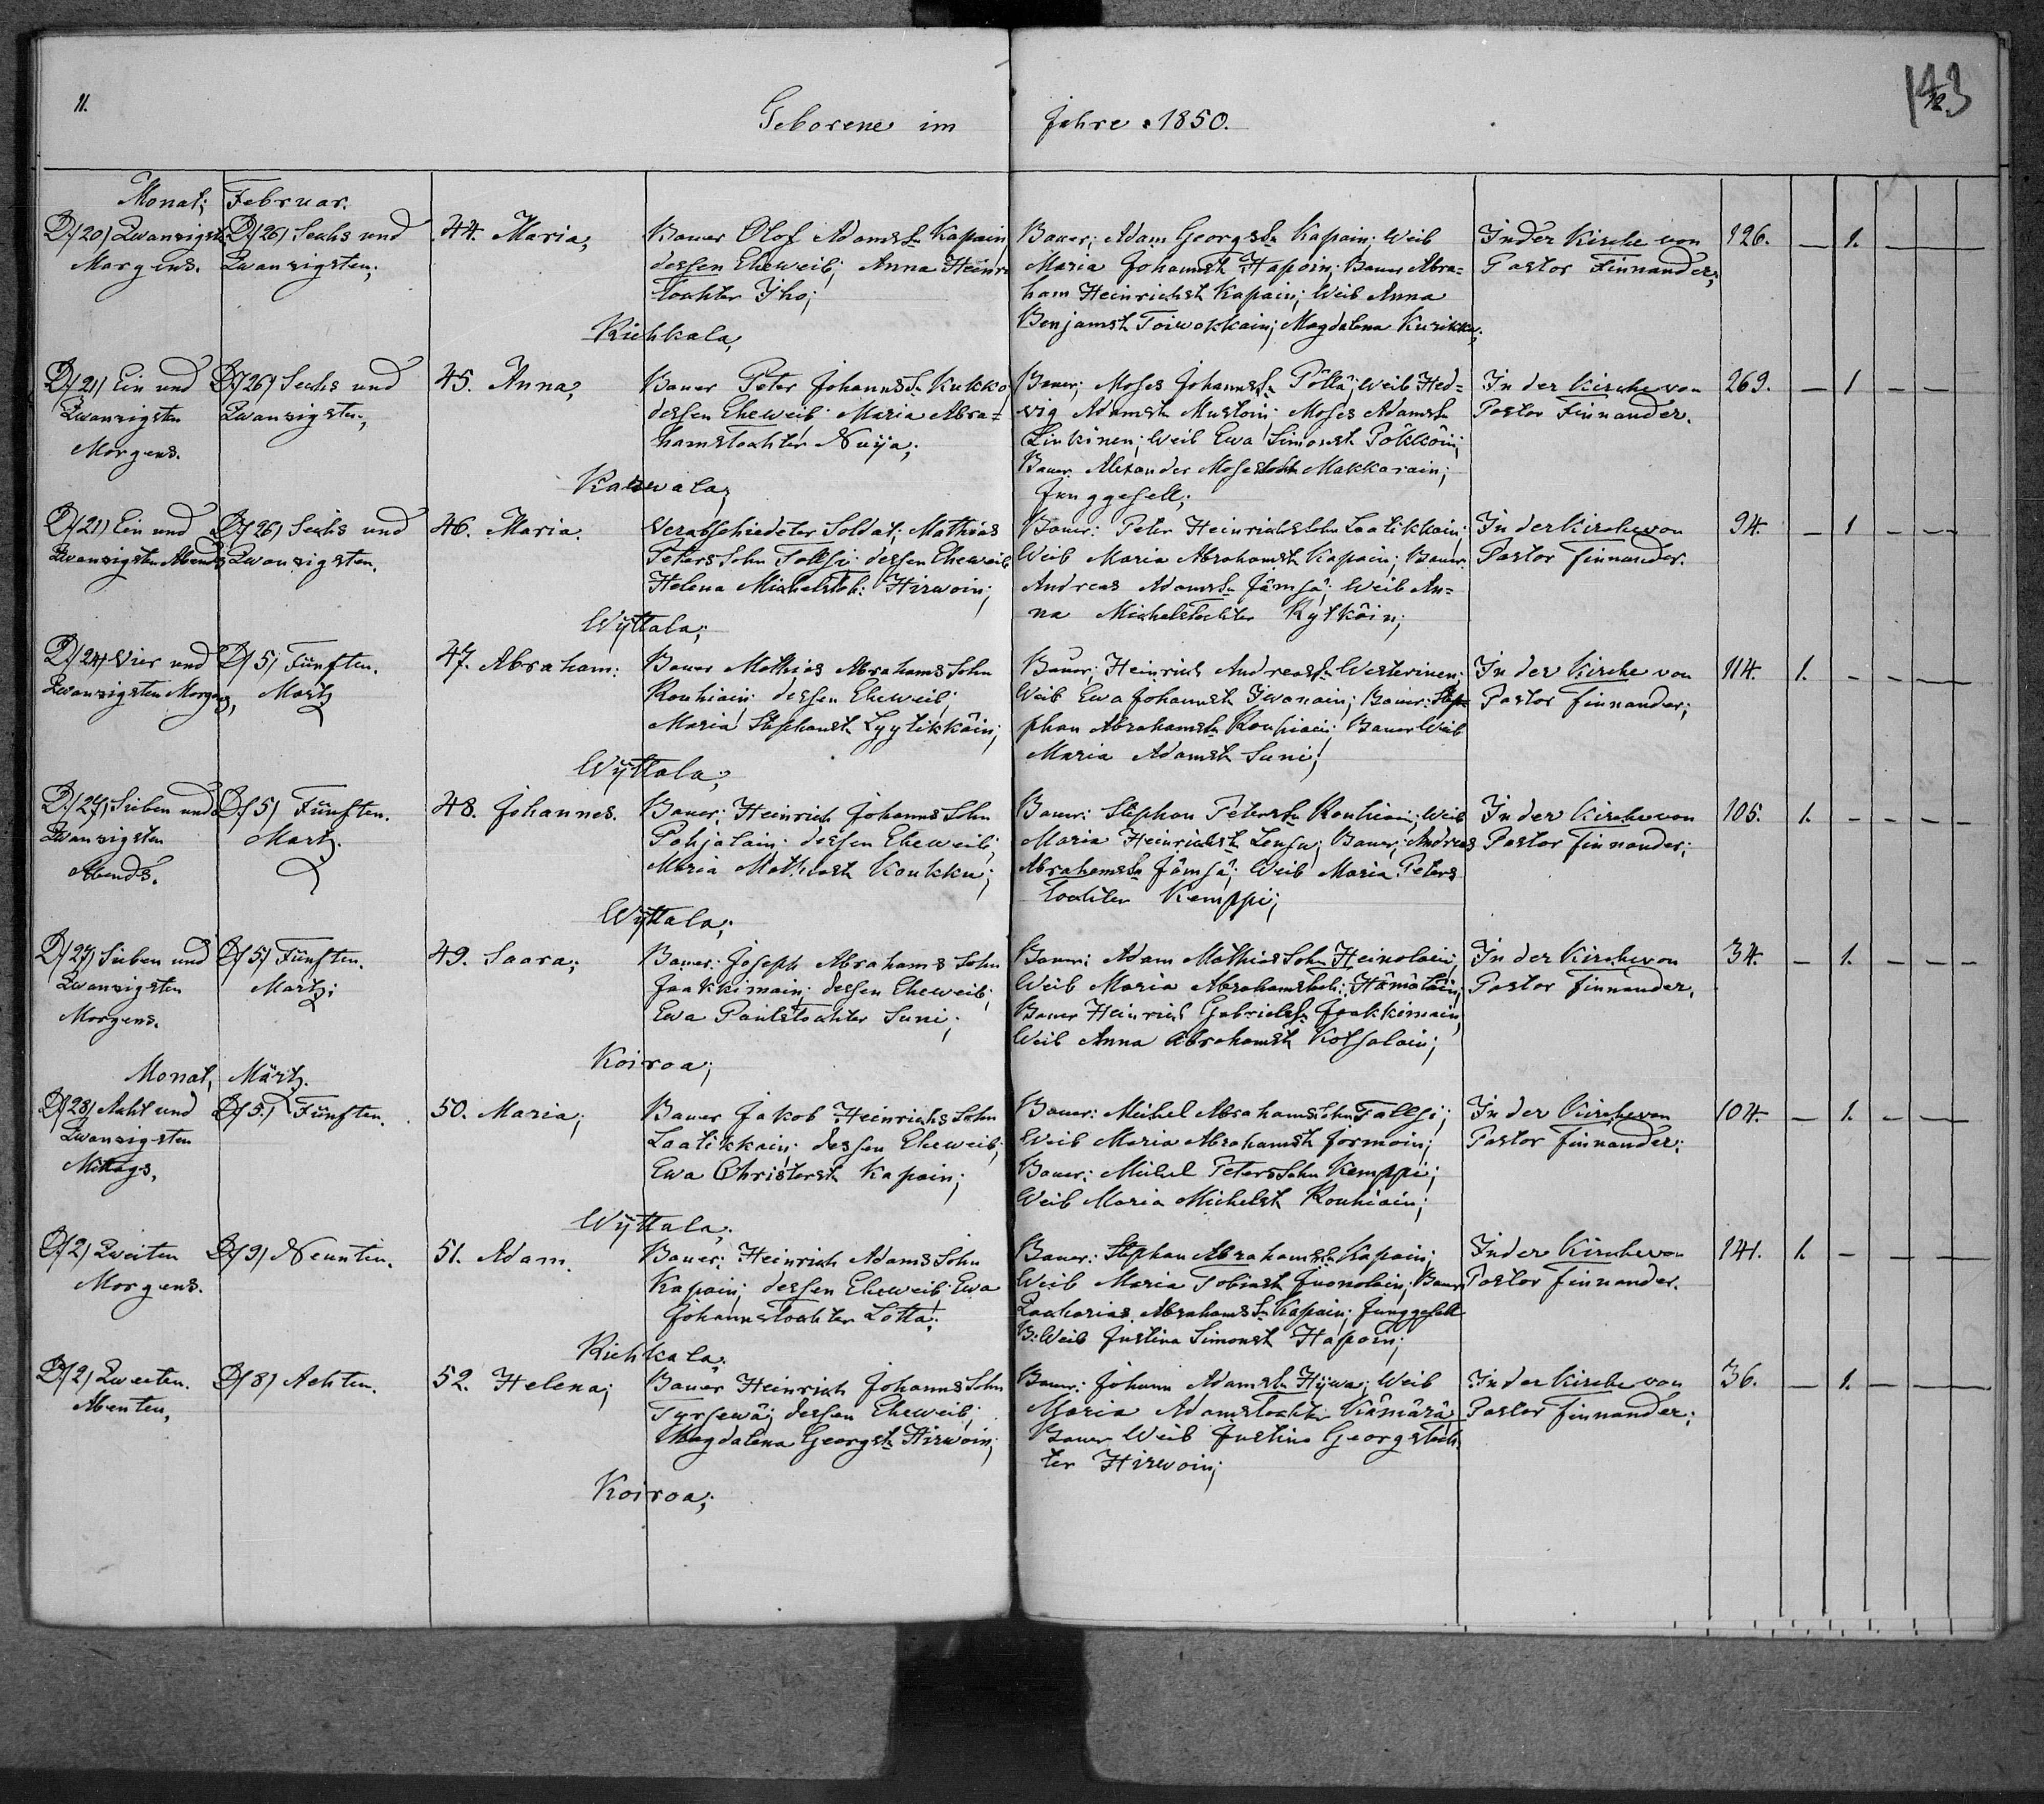 11.
143
12.
Geborene im Jahre 1850.
Monat; Februar.
D/20) Zwanzigst. D/26) Sechs und 44. Maria, Bauer Olof AdamsSn Kapain Bauer; Adam GeorgsSn Kapain; Weib In der Kirche von 126. — 1. — —
Morgens. Zwanzigsten; dessen Eheweib; Anna Heinr Maria Johannst Hapoin; Bauer Abra= Pastor Finnander;
tochter Iho; ham Heinrichst Kapain; Weib Anna
Riehkala, Benjamst Toiwokkain; Magdalena Kurikka;
D/21) Ein und D/26) Sechs und 45. Anna, Bauer Peter JohannsSn Kukko Bauer; Moses JohannsSn Pöllä; Weib Hed= In der Kirche von 269. — 1 — —
Zwanzigsten Zwanzigsten; dessen Eheweib: Maria Abra= wig Adamst Mustoin; Moses AdamsSn Pastor Finnander.
Morgens. hamstochter Nuija; Linkinen; Weib Ewa Simonst Pökköin;
Bauer Alexander Mosessohn Makkarain;
Junggesell;
D/21) Ein und D/26) Sechs und 46. Maria. Verabschiedeter Soldat; Mathias Bauer: Peter Heinrichssohn Laatikkain; In der Kirche von 94. — 1 — —
Zwanzigsten Abends Zwanzigsten. Peters Sohn Tallsi dessen Eheweib Weib Maria Abrahamst Kapain; Bauer Pastor Finnander.
Helena Michelstoch: Hirwoin; Andreas AdamsSn Jämsä; Weib An=
Wyttala; na Michelstochter Kytköin;
D/24) Vier und D/5) Fünften. 47. Abraham: Bauer Mathias Abrahams Sohn Bauer; Heinrich AndreasSn Westerinen; In der Kirche von 114. 1. — — —
Zwanzigsten Morgens, Martz Rouhiain; dessen Eheweib; Weib Ewa Johannst Iwanain; Bauer: Ste= Pastor Finnander;
Maria Stephanst Lyytikkäin; phan AbrahamsSn Rouhiain; Bauer Weib
Wyttala; Maria Adamst Suni;
D/27) Sieben und D/5) Fünften. 48. Johannes. Bauer; Heinrich Johanns Sohn Bauer: Stephan PetersSn Rouhiain; Weib In der Kirche von 105. 1. — — — —
Zwanzigsten Martz. Pohjalain; dessen Eheweib; Maria Heinrichst Lensu; Bauer; Andreas Pastor Finnander;
Abends. Maria Mathiast Koukku; AbrahamsSn Jämsä; Weib Maria Peters
tochter Kemppi;
Wyttala;
D/27) Sieben und D/5) Fünften. 49. Saara; Bauer: Joseph Abrahams Sohn Bauer; Adam Mathias Sohn Heinolain; In der Kirche von 34. — 1. — — —
Zwanzigsten Martz; Jaakkimain; dessen Eheweib; Weib Maria Abrahamstoch: Hämäläin; Pastor Finnander.
Morgens. Ewa Paulstochter Suni; Bauer Heinrich GabrielsSn Jaakkimain;
Weib Anna Abrahamst Kotsalain;
Koiroa;
Monat, Märtz.
D/28) Acht und D/5.) Fünften. 50. Maria; Bauer Jakob Heinrichs Sohn Bauer: Michel AbrahamsSohn Tallsi; In der Kirche von 104. — 1. — —
Zwanzigsten Laatikkain; dessen Eheweib; Weib Maria Abrahamst Jormain; Pastor Finnander:
Mittags. Ewa Christerst Kapain; Bauer: Michel PetersSohn Kemppi;
Weib Maria Michelst Rouhiain;
Wyttala;
D/2) Zweiten D/9) Neunten. 51. Adam. Bauer: Heinrich Adams Sohn Bauer: Stephan AbrahamsSn Kapain; In der Kirche von 141. 1. — — —
Morgens. Kapain; dessen Eheweib Ewa Weib Maria Tobiast Juonolain; Bauer Pastor Finnander.
Johannstochter Lotta; Zacharias AbrahamsSn Kapain; Junggesell
Riehkala; B: Weib Justina Simonst Hapoin;
D/2) Zweiten. D/8) Achten. 52. Helena; Bauer Heinrich Johanns Sohn Bauer: Johann AdamsSn Hijwa; Weib In der Kirche von 36. — 1. — — —
Abenten, Tyrsewä; dessen Eheweib; Maria Adamstochter Kämärä, Pastor Finnander;
Magdalena Georgst Hirwoin; Bauer Weib Justina Georgstoch
ter Hirwoin;
Koiroa;